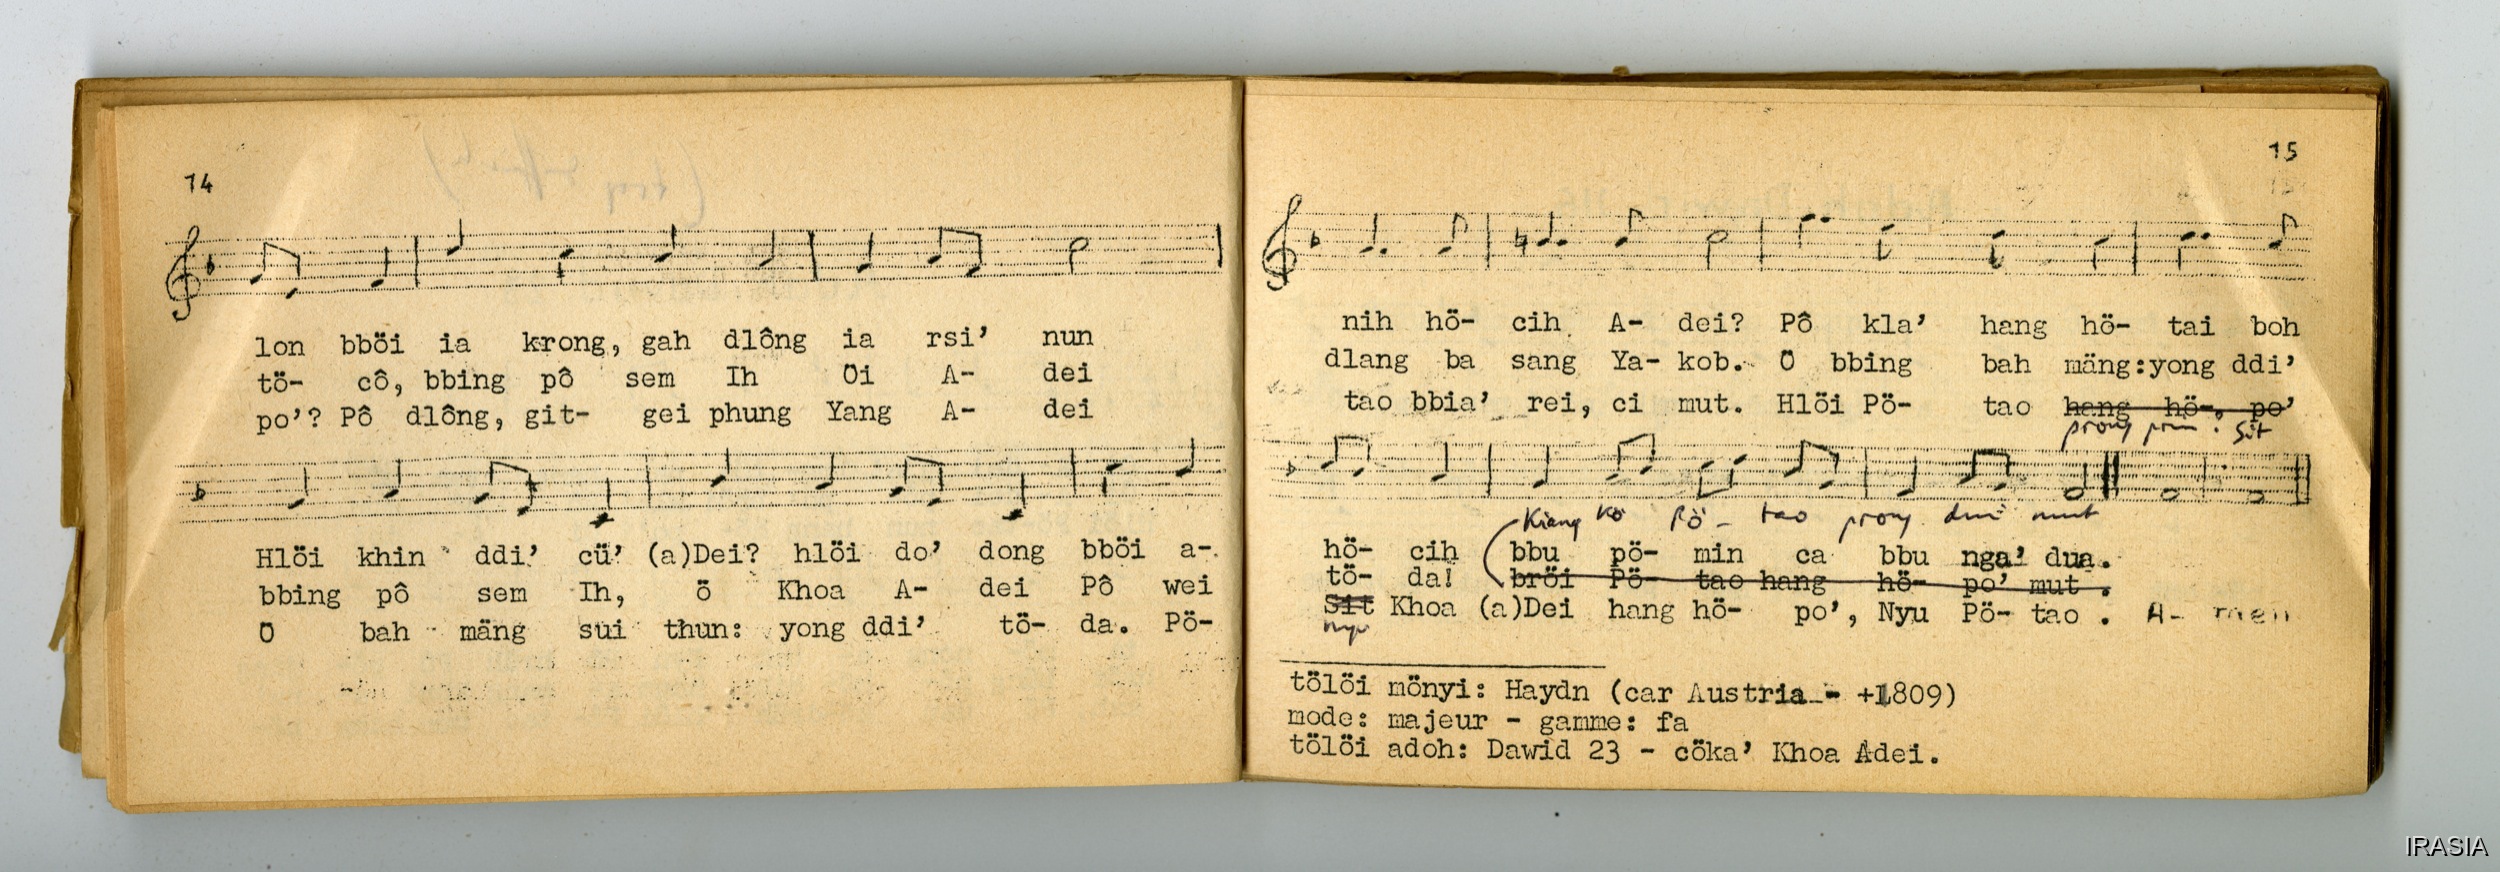 14
lon bböi ia krong, gah dlông ia rsi' nun
tö- cô, bbing pô sem Ih Öi A- dei
po'? Pô dlông, git- gei phung Yang A- dei
Hlöi khin ddi' cü' (a)Dei? hlöi do' dong bböi a-
bbing pô sem Ih, ö Khoa A- dei Pô wei
O bah mäng sui thun: yong ddi' tö- da. Pö-
15
nih hö- cih A- dei? Pô kla' hang hö- tai boh
dlang ba sang Ya- kob. O bbing bah mäng:yong ddi'
tao bbia' rei, ci mut. Hlöi Pö- tao hang hö-, po'
prong prin. Sit
Kiang kö Pö- tao prong dui mut
hö- cih bbu pö- min ca bbu nga' dua.
tö- da! bröi Pö- tao hang hö- po' mut.
Sit Khoa (a)Dei hang hö- po', Nyu Pö- tao. A- men
nyu
tölöi mönyi: Haydn (car Austria - +1809)
mode: majeur - gamme: fa
tölöi adoh: Dawid 23 - cöka' Khoa Adei.
IRASIA